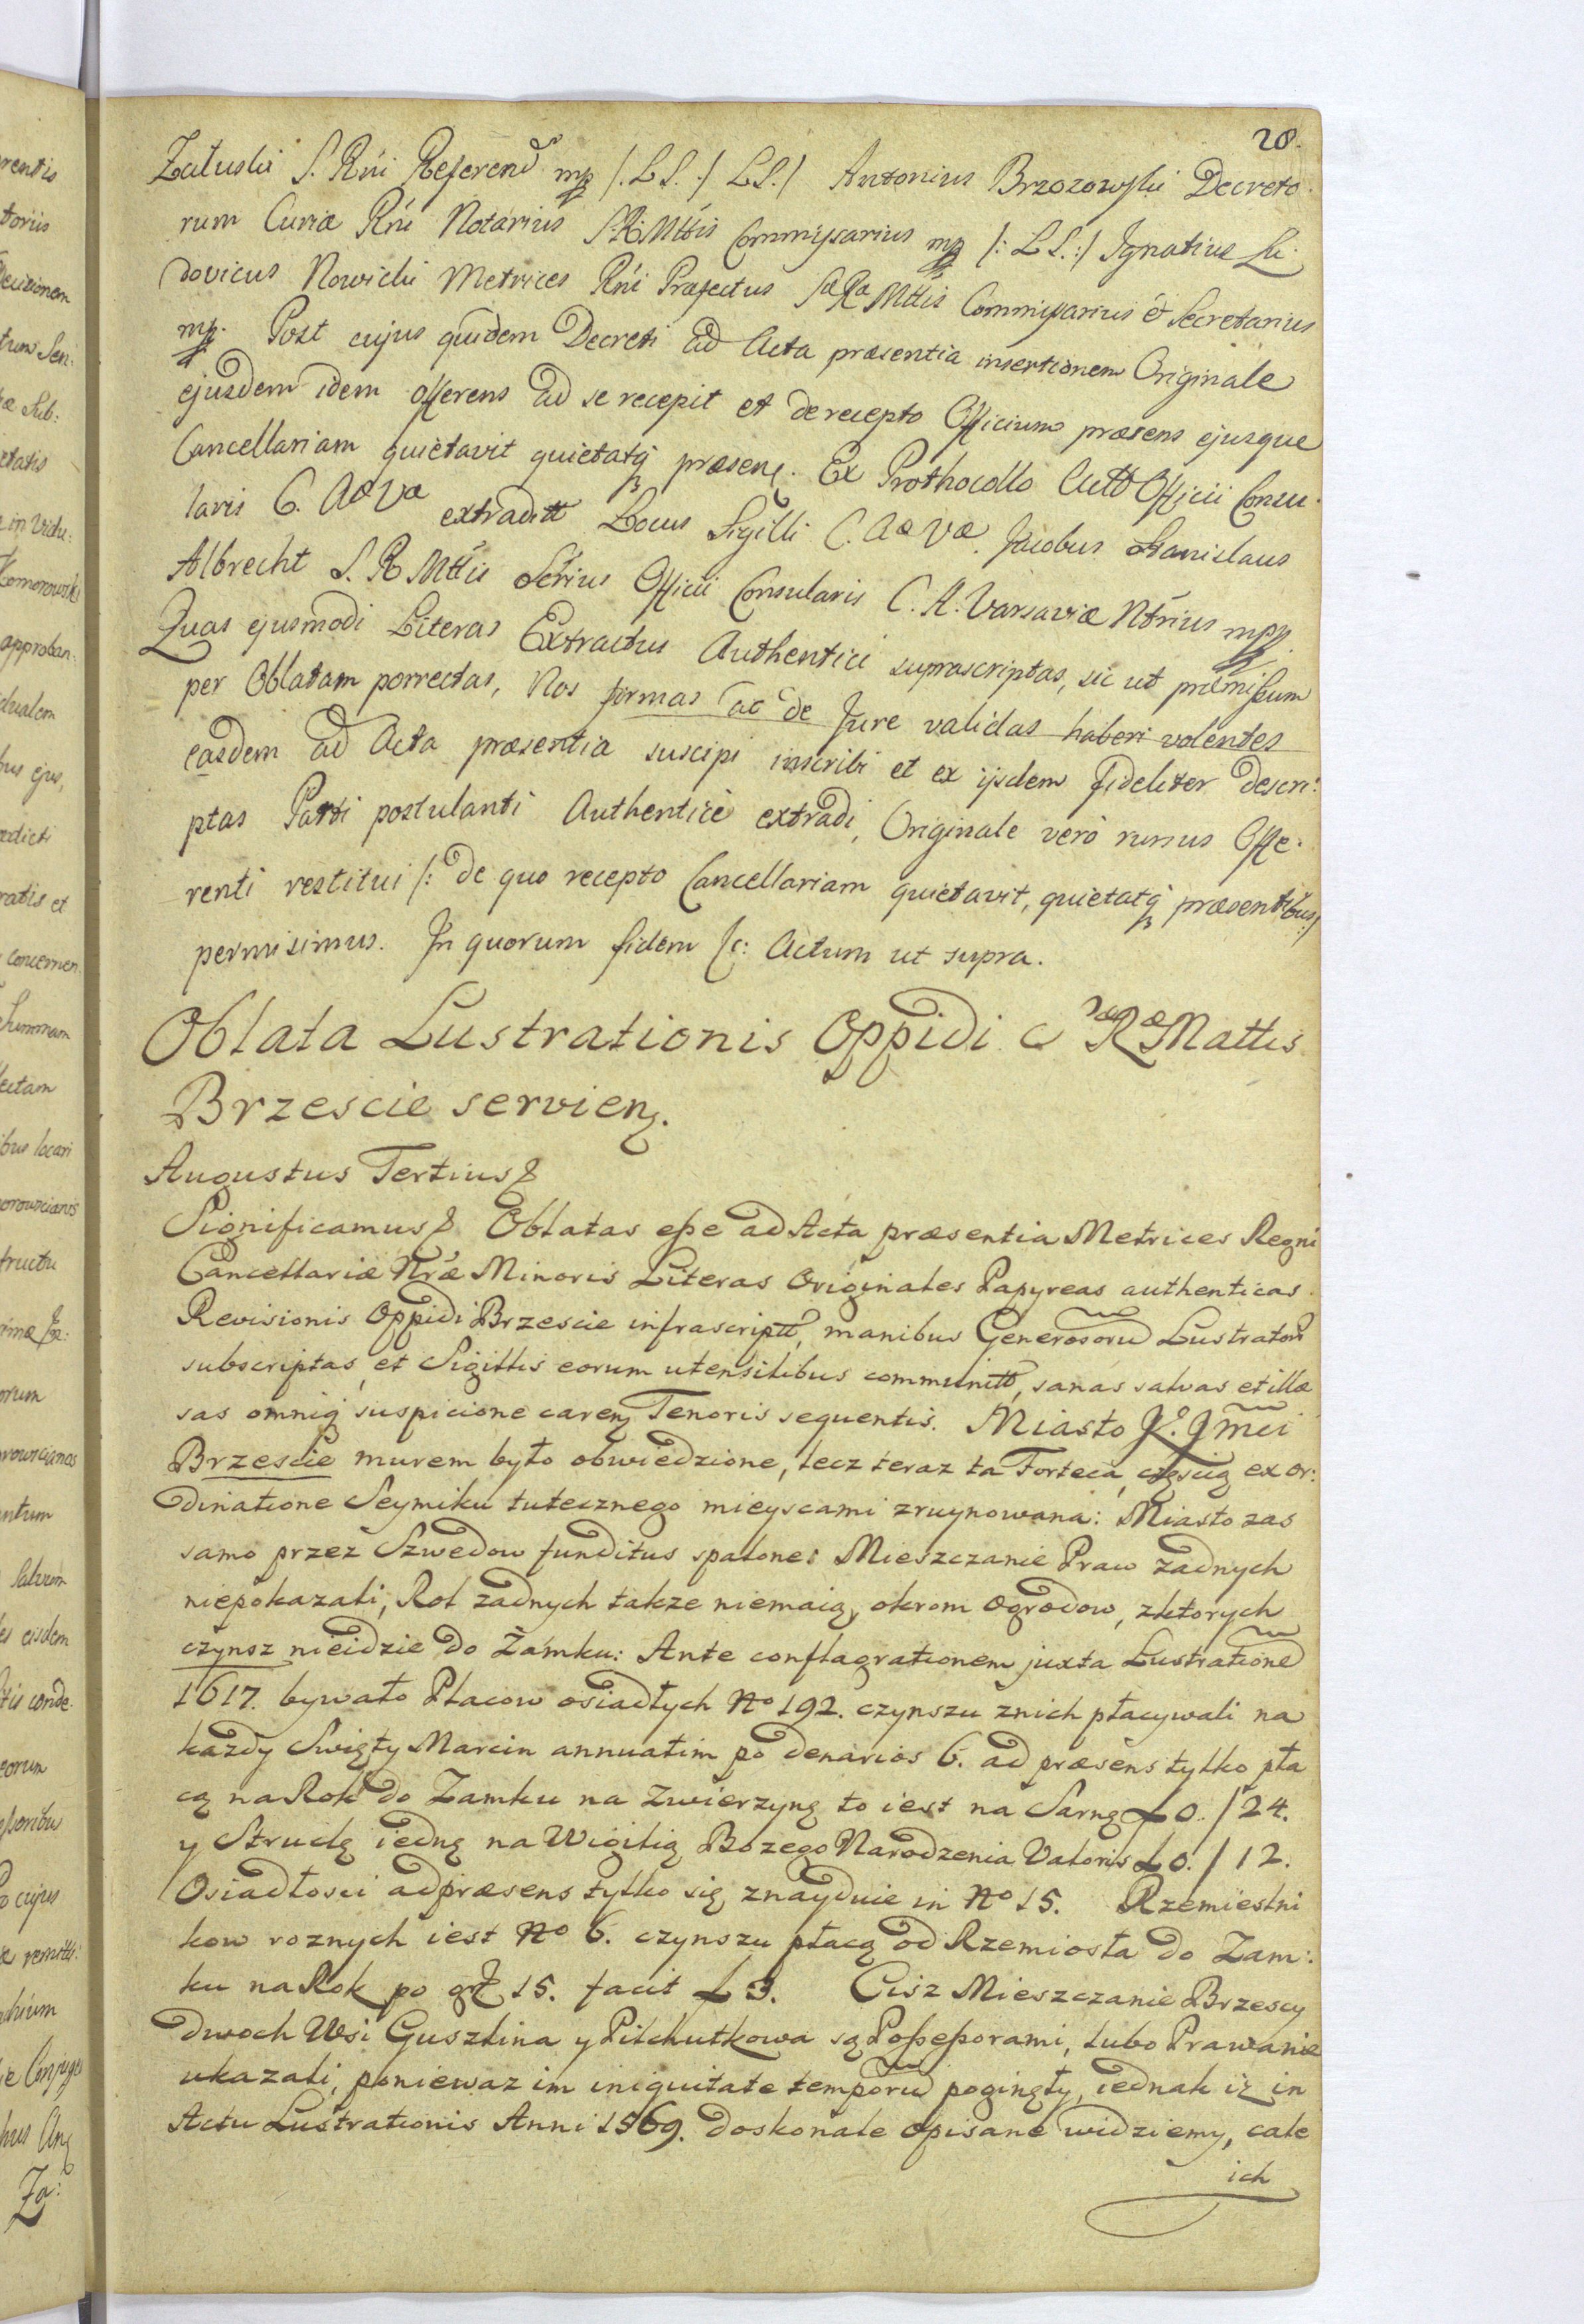 28.
Załuski S. Rni Referend mp /. L S. / L S. / Antonius Brzozowski Decreto
rum Curiæ Rni Notarius S. R. Mttis Commissarius mp /: L S. :/ Ignatius Lu:
dovicus Nowicki Metrices Rni Præfectus SæRæ Mttis Commissarius & Secretarius
mp. Post cujus quidem Decreti ad Acta præsentia insertionem Originale
ejusdem idem offerens ad se recepit et de recepto Officium præsens ejusque
Cancellariam quietavit quietatq præsen. Ex Prothocollo Actt Officii Consu:
laris C. Aæ Væ extraditt Locus Sigilli C. Aæ Væ. Jacobus Stanislaus
Albrecht S. R Mttis Sctrius Officii Consularis C. A. Varsaviæ Ntrius mpp.
Quas ejusmodi Literas Extractus Authentici suprascriptas, sic ut præmissum
per Oblatam porrectas, Nos firmas ac de Jure validas haberi volentes
easdem ad Acta præsentia suscipi inscribi et ex ijsdem fideliter descri:
ptas Parti postulanti Authenticè extradi, Originale verò rursus Offe:
renti restitui /: de quo recepto Cancellariam quietavit, quietatq præsentibus :/
permisimus. In quorum fidem &c: Actum ut supra.
Oblata Lustrationis Oppidi S æRæ Mattis
Brzescie servien.
Augustus Tertius &
Significamus & Oblatas esse ad Acta præsentia Metrices Regni
Cancellariæ Nræ Minoris Literas Originales Papyreas authenticas
Revisionis Oppidi Brzescie infrascriptt, manibus Generosoru Lustrator
subscriptas, et Sigillis eorum utensilibus communitt, sanas salvas et illæ
sas omniq suspicione caren Tenoris sequentis. Miasto J. K. Jmci
Brzescie murem było obwiedzione, lecz teraz ta Forteca, częscią ex or:
dinatione Seymiku tutecznego mieyscami zruynowana: Miasto zas
samo przez Szwedow funditus spalone: Mieszczanie Praw zadnych
niepokazali, Rol zadnych takze niemaią, okrom Ogrodow, zktorych
czynsz nieidzie do Zamku: Ante conflagrationem juxta Lustratione
1617. bywało Placow osiadłych No 192. czynszu znich płacywali na
kazdy Swięty Marcin annuatim po denarios 6. ad præsens tylko pła
cą na Rok do Zamku na Zwierzynę to iest na Sarnę f 0. / 24.
y Struclę iednę na Wigilią Bozego Narodzenia Valoris f 0. / 12.
Osiadłosci ad præsens tylko się znayduie in No 15. Rzemieslni
kow roznych iest No 6. czynszu płacą od Rzemiosła do Zam:
ku na Rok po gr 15. facit f 3. Ciz Mieszczanie Brzescy
dwoch Wsi Guszlina y Pilchutkowa są Possessorami, lubo Prawa nie
ukazali, poniewaz im iniquitate temporu poginęły, iednak iz in
Actu Lustrationis Anni 1569. doskonale opisane widziemy, cale
ich